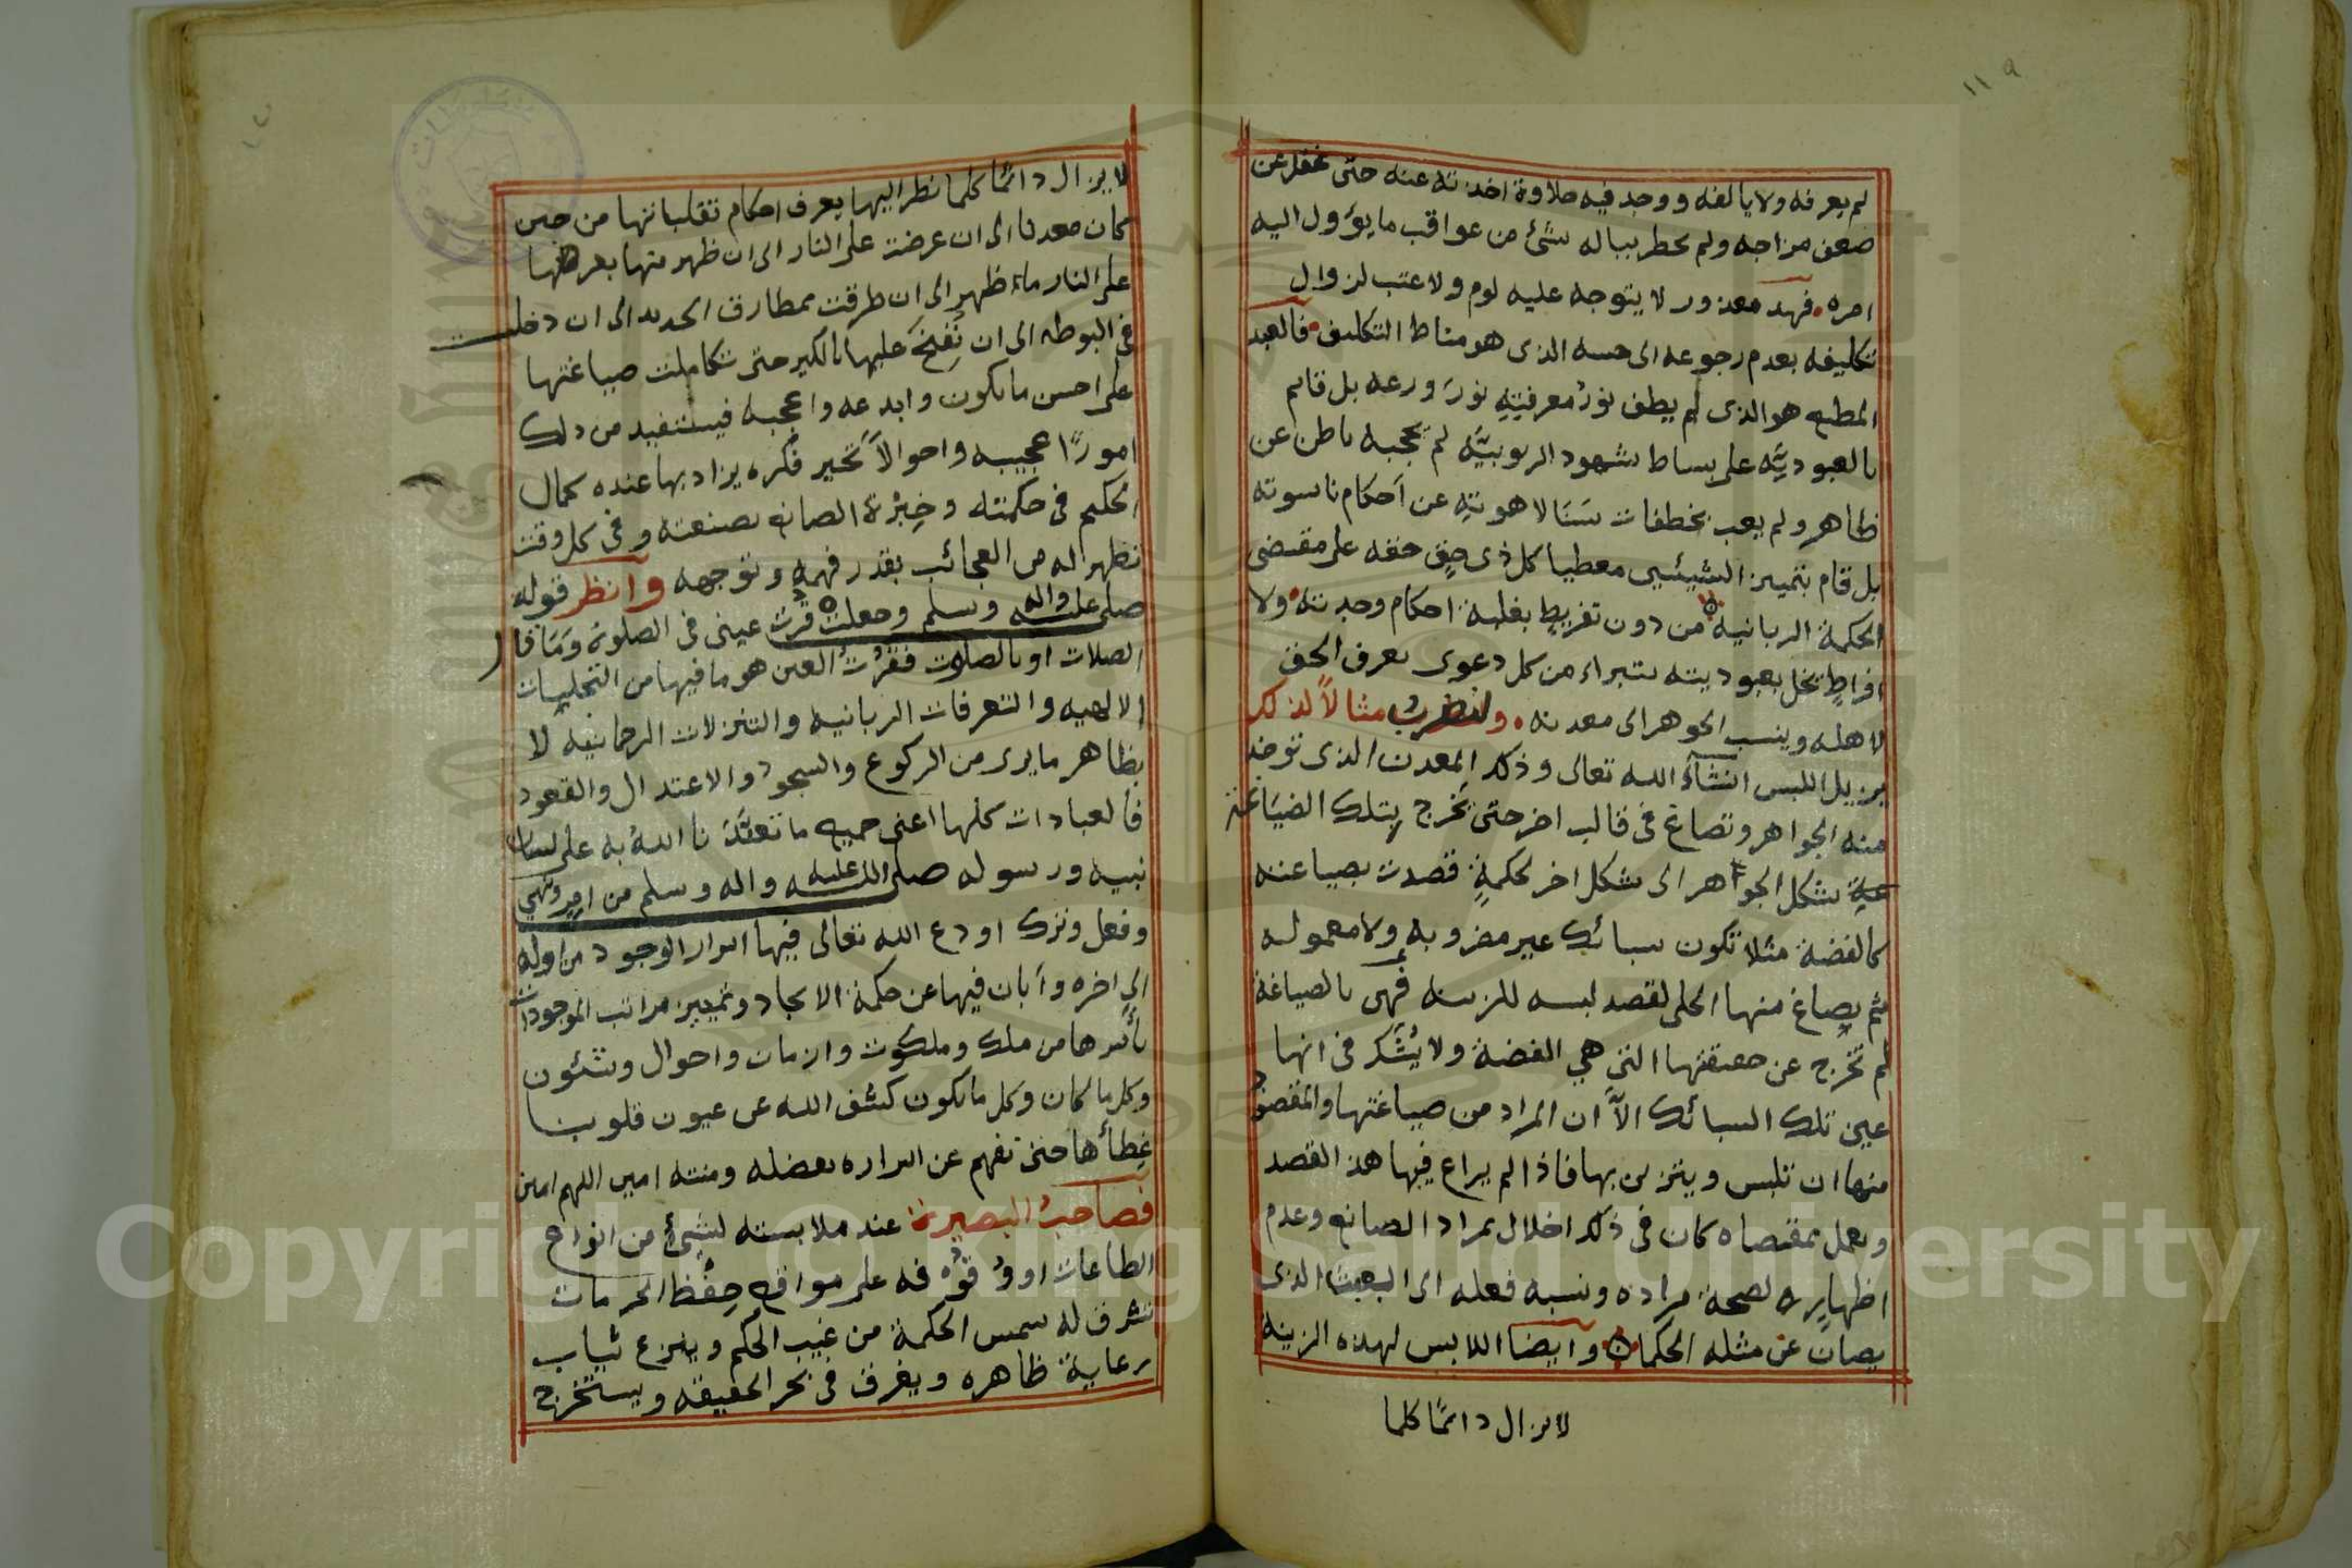 ١١٩
لم يعرفه ولا يالفه ووجد فيه حلاوة اخذته عنه حتى غفل عن
ضعف مزاجه ولم يخطر بباله شئ من عواقب ما يؤول اليه
امره فهذ معذور لا يتوجه عليه لوم ولا عتب لزوال
تكليفه بعدم رجوعه الى حسه الذى هو مناط التكليف فالعبد
المطيع هو الذى لم يطف نورُ معرفتِهِ نورَ ورعه بل قايم
بالعبوديَّه على بساط شهود الربوبيَّه لم يحجبه باطن عن
ظاهر ولم يعب بخطفات سَنَا لاهوتِهِ عن اَحكام ناسوته
بل قام بتميز الشيئين معطيا كل ذى حقٍ حقه على مقتضى
الحكمة الربانيه من دون تفريطٍ بغلبة احكام وحدته ولا
افراطٍ يخل بعبوديته يتبراء من كل دعوى يعرف الحق
لاهله وينسب الجوهر الى معدنه ولنضرب مثالاً لذلك
يزيل اللبس انشآء الله تعالى وذلك المعدن الذى توخذ
منه الجواهر وتصاغ فى قالب اخر حتى تخرج بتلك الصِيَاغة
عن شكل الجواهر الى شكل اخر لحكمةٍ قصدت بصياغته
كالفضة مثلا تكون سبائك غير مضروبه ولا معموله
ثم يصاغ منها الحلى لقصد لبسه للزينه فهى بالصياغة
لم تخرج عن حقيقتها التى هي الفضة ولا يُشَكُ فى انها
عين تلك السبائك الاَّ ان المراد من صياغتها والمقصود
منها ان تلبس ويتزين بها فاذا لم يراع فيها هذ القصد
ويعمل بمقتضاه كان فى ذلك اخلال بمراد الصانع وعدم
اظهارٍ لصحة مراده ونسبه فعله الى العبث الذى
يصان عن مثله الحكما وايضا اللابس لهذه الزينه
لايزال دائمًا كلما
لايزال دائمًا كلما نظر اليها يعرف احكام تقلباتها من حين
كان معدنا الى ان عرضت على النار الى ان ظهر منها بعرضها
على النار ماء ظهر الى ان طرقت بمطارق الحديد الى ان دخلت
فى البوطه الى ان نُفِخَ عليها بالكير حتى تكاملت صياغتها
على احسن مايكون وابدعه واعجبه فيستفيد من ذلك
امورًا عجيبه واحوالاً تَحير فكره يزاد بها عنده كمال
الحكيم فى حكمته وخِبْرة الصانع بصنعته وفى كل وقت
تظهر له من العجائب بقدر فهمه وتوجهه وانظر قوله
صلى الله عليه واله وسلم وجعلت قرت عينى فى الصلوة ومَا قال
الصلات او بالصلوت فقرُتُ العين هو ما فيها من التجليات
الالهيه والتعرفات الربانيه والتنزلات الرحمانيه لا
بظاهر مايرى من الركوع والسجود والاعتدال والقعود
فالعبادات كلها اعنى جميع ما تعبَّدَنا اللهُ به على لسان
نبيه ورسوله صلى الله عليه واله وسلم من امرٍ ونهي
وفعل وترك اودع الله تعالى فيها اسرار الوجود من اوله
الى اخره وأبان فيها عن حكمة الايجاد وتمييز مراتب الموجودات
بأسرها من ملك وملكوت وازمان واحوال وشئون
وكل ما كان وكل مايكون كشف الله عن عيون قلوبنا
غِطأها حتى تفهم عن اسراره بفضله ومنته امين اللهم امين
فصاحبُ البصيرة عند ملابسته لشئٍ من انواع
الطاعات او وُقُوْفه على مواقع حِفْظ الحرمات
تشرق له شمس الحكمة من غيب الحكم وينزع ثياب
رعاية ظاهره ويغرق فى بحر الحقيقه ويستخرج
Copyright © King Saud University